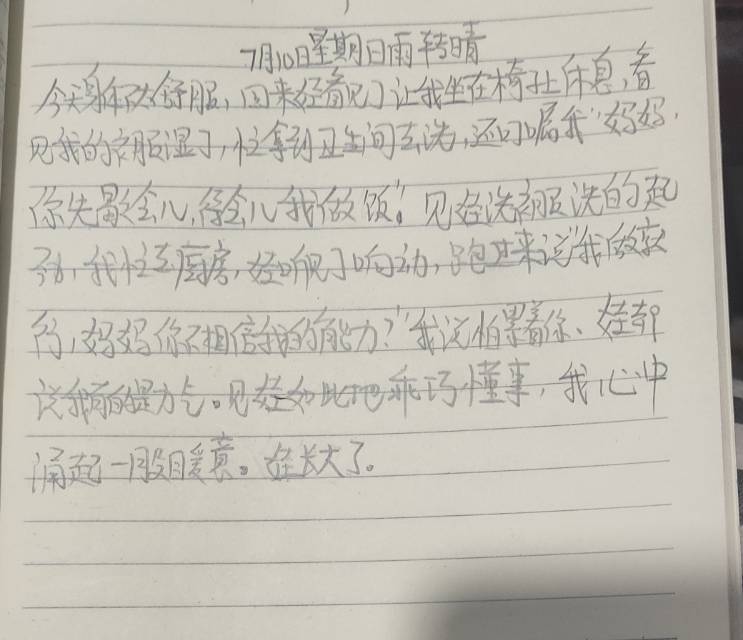 7月10日星期日雨转晴
今天身体不太舒服,回来娃看见了让我坐在椅子上休息,看
见我的衣服湿了,忙拿到卫生间去洗,还叮嘱我"妈妈,
你先歇会儿,等会儿我做饭"。见娃洗衣服洗的起
劲,我忙去厨房,娃听见了响动,跑过来说"我做就
行,妈妈你不相信我的能力?"我说怕累着你、娃却
说我有的是力气。见娃如此地乖巧懂事,我心中
涌起一股暖意。娃长大了。